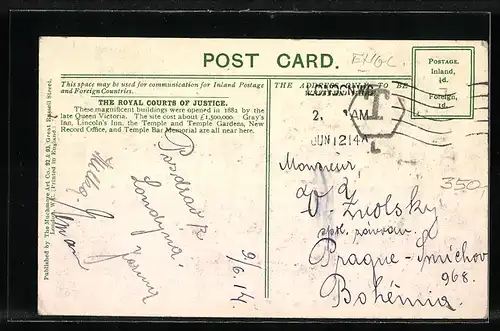 POST CARD.
ENGL.
POSTAGE.
Inland,
½d.
Foreign,
1d.
This space may be used for communication for Inland Postage
and Foreign Countries.
THE ADDRESS ONLY TO BE
THE ROYAL COURTS OF JUSTICE.
These magnificent buildings were opened in 1882 by the
late Queen Victoria. The site cost about £1,500,000. Gray's
Inn, Lincoln's Inn, the Temple and Temple Gardens, New
Record Office, and Temple Bar Memorial are all near here.
T
L
AM
JUN 12 14
Pozdrav z
Londýna.
9/6.14.
Monsieur,
Zvolsky
Prague-Smichov
968.
Bohémia.
350,-
Published by The Museum Art Co.
Great Russell Street,
London, W.C. (Printed in England)